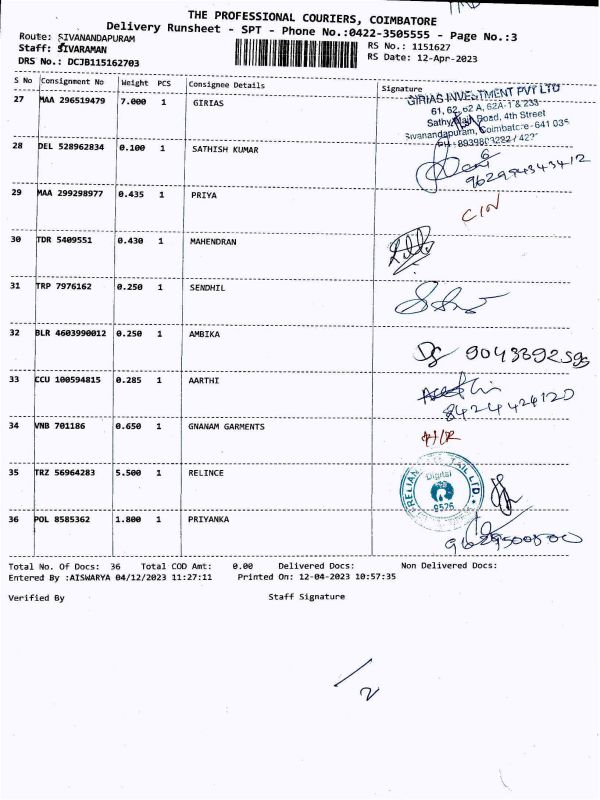 THE PROFESSIONAL COURIERS, COIMBATORE
Delivery Runsheet - SPT - Phone No.:0422-3505555 - Page No.:3
Route: SIVANANDAPURAM
Staff: SIVARAMAN
DRS No.: DCJB115162703
RS No.: 1151627
RS Date: 12-Apr-2023
S No Consignment No Weight PCS Consignee Details Signature
27 MAA 296519479 7.000 1 GIRIAS
GIRIAS INVESTMENT PVT LTD
61, 62, 62 A, 62A-1 & 233
Sathy Main Road, 4th Street
Sivanandapuram, Coimbatore - 641 035
28 DEL 528962834 0.100 1 SATHISH KUMAR
29 MAA 299298977 0.435 1 PRIYA
CIN
30 TDR 5409551 0.430 1 MAHENDRAN
31 TRP 7976162 0.250 1 SENDHIL
32 BLR 4603990012 0.250 1 AMBIKA
33 CCU 100594815 0.285 1 AARTHI
8424424120
34 VNB 701186 0.650 1 GNANAM GARMENTS
35 TRZ 56964283 5.500 1 RELINCE
Digital
9526
36 POL 8585362 1.800 1 PRIYANKA
Total No. Of Docs: 36 Total COD Amt: 0.00 Delivered Docs: Non Delivered Docs:
Entered By :AISWARYA 04/12/2023 11:27:11 Printed On: 12-04-2023 10:57:35
Verified By Staff Signature